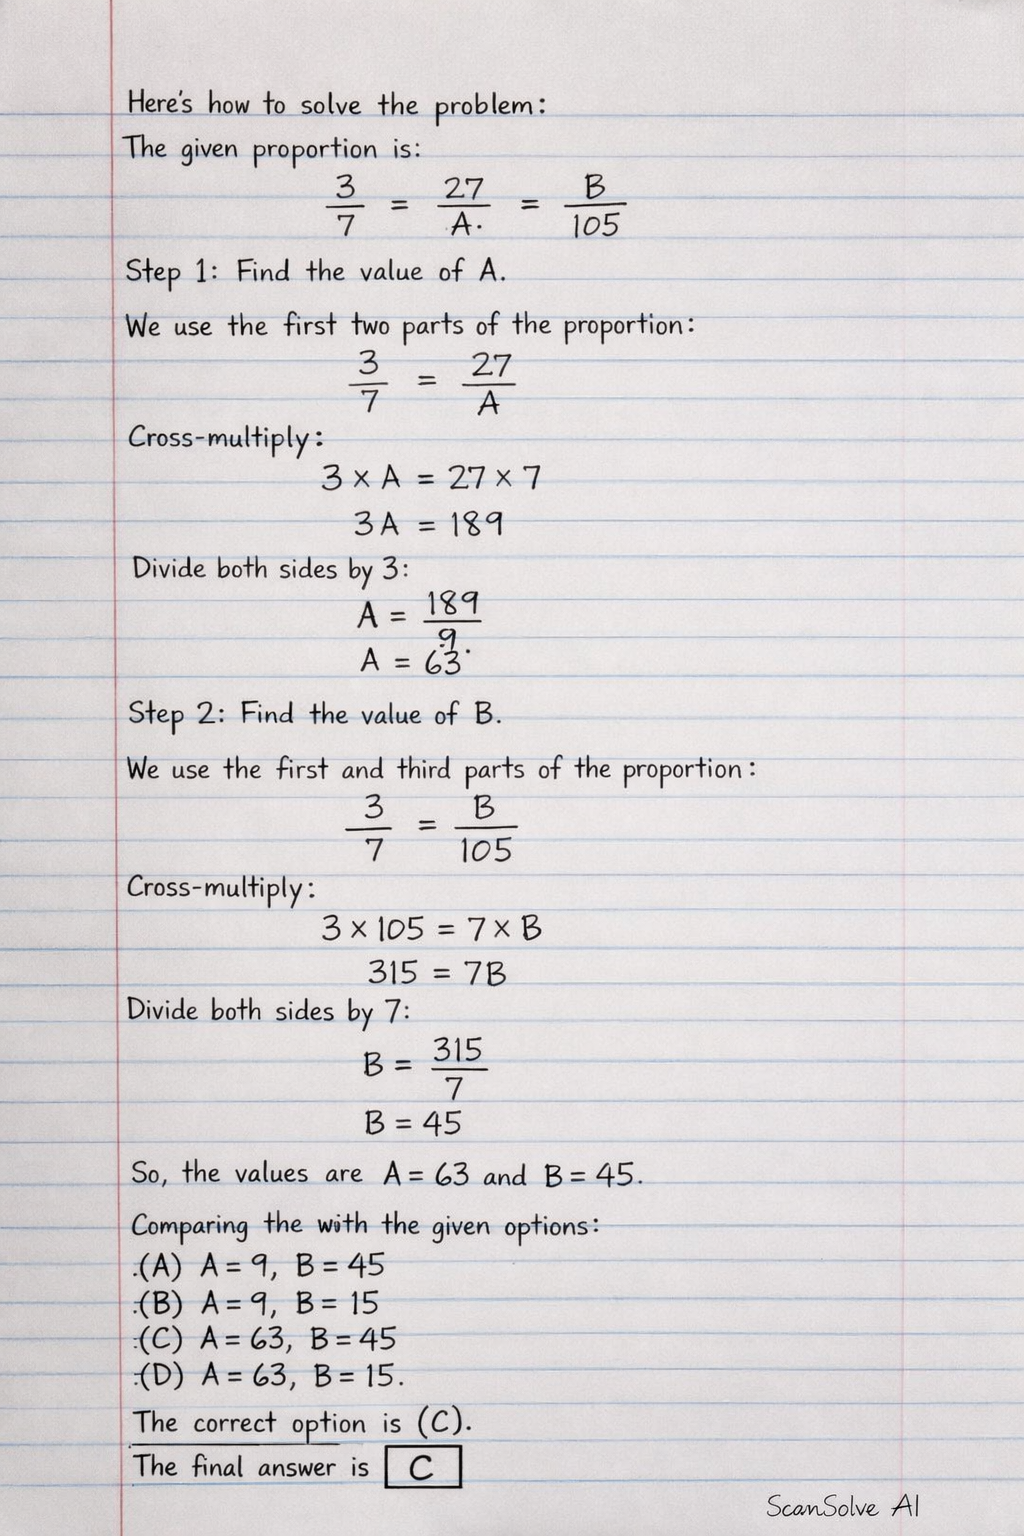 Here's how to solve the problem:
The given proportion is:
3/7 = 27/A. = B/105
Step 1: Find the value of A.
We use the first two parts of the proportion:
3/7 = 27/A
Cross-multiply:
3 × A = 27 × 7
3A = 189
Divide both sides by 3:
A = 189/9
A = 63
Step 2: Find the value of B.
We use the first and third parts of the proportion:
3/7 = B/105
Cross-multiply:
3 × 105 = 7 × B
315 = 7B
Divide both sides by 7:
B = 315/7
B = 45
So, the values are A = 63 and B = 45.
Comparing the with the given options:
(A) A = 9, B = 45
(B) A = 9, B = 15
(C) A = 63, B = 45
(D) A = 63, B = 15.
The correct option is (C).
The final answer is C
ScanSolve AI